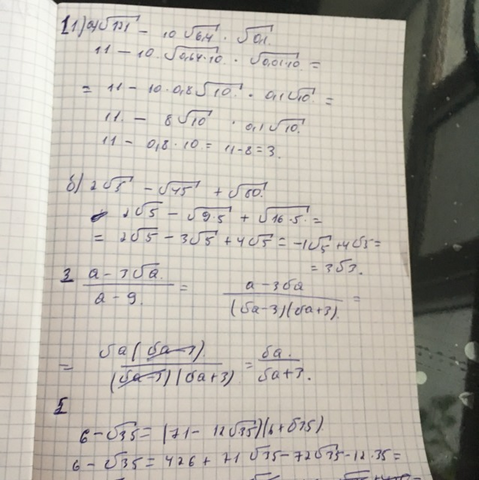 1 1) а) √121 - 10 √6,4 · √0,1.
11 - 10 · √0,64·10 · √0,01·10 =
= 11 - 10·0,8√10 · 0,1√10 =
11 - 8√10 · 0,1√10
11 - 0,8·10 = 11-8=3.
б) 2√5 - √45 + √80.
2√5 - √9·5 + √16·5 =
= 2√5 - 3√5 + 4√5 = -1√5 + 4√5 =
= 3√5.
3 (a - 3√a)/(a - 9) = (a - 3√a)/((√a-3)(√a+3)) =
= (√a(√a-3))/((√a-3)(√a+3)) = √a/(√a+3).
5
6-√35 = (71 - 12√35)(6+√35)
6 - √35 = 426 + 71√35 - 72√35 - 12·35 =